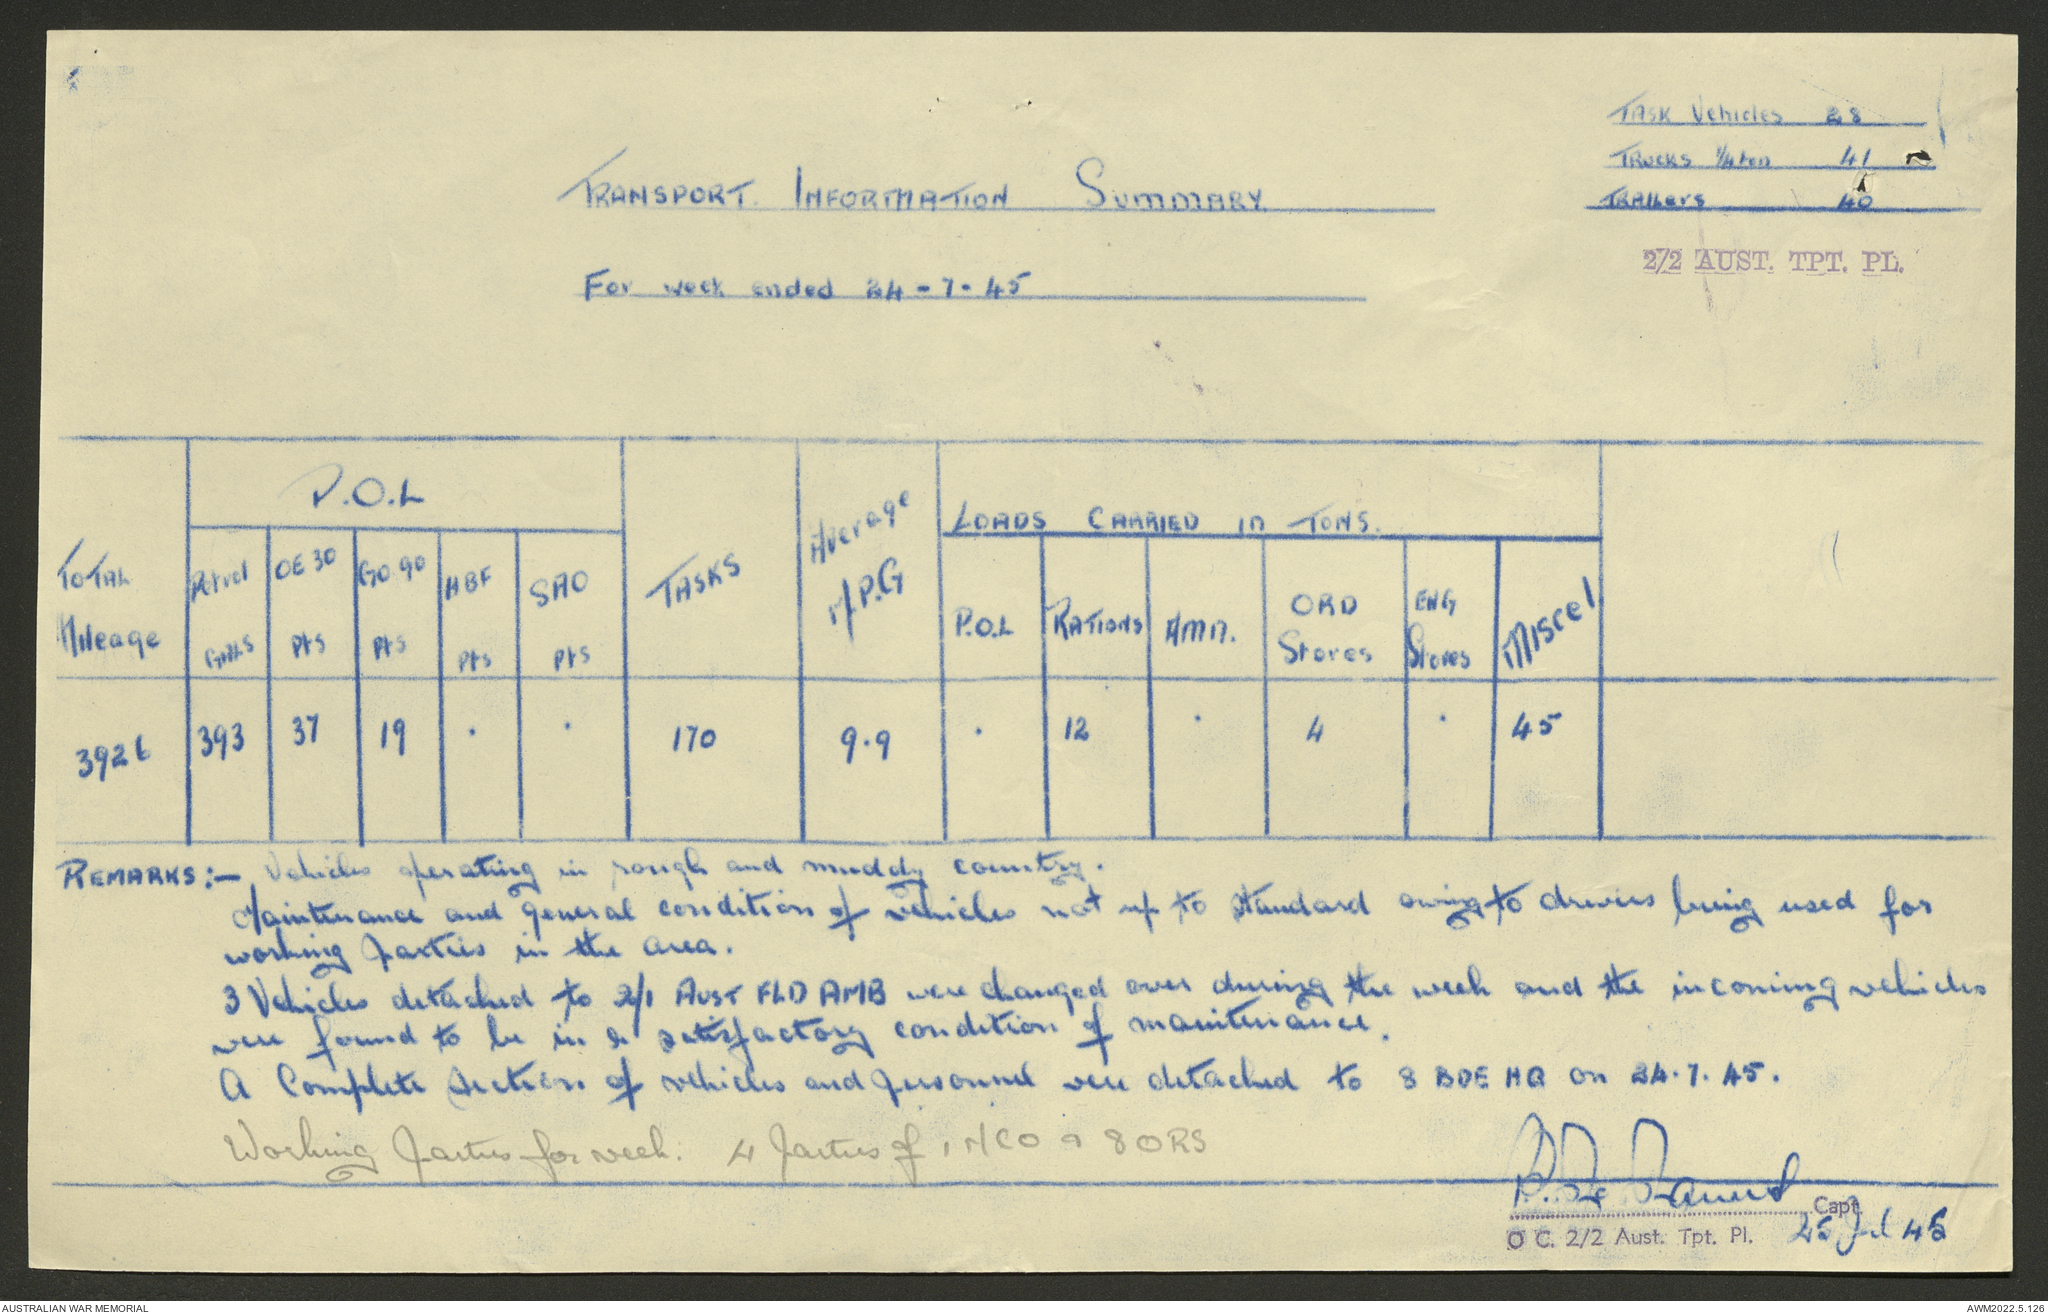 TASK Vehicles 28
TRUCKS 1/4 ton 41
TRAILers 40
TRANSPORT INFORMATION SUMMARY
For week ended 24-7-45
2/2 AUST. TPT. PL.
P.O.L
LOADS CARRIED in TONS.
TOTAL Mileage
Petrol GALLS
OE 30 pts
GO 90 pts
HBF pts
SAO pts
TASKS
Average M.P.G
P.O.L
RATIONS
AMN.
ORD Stores
ENG Stores
Miscel
3926 393 37 19 . . 170 9.9 . 12 . 4 . 45
REMARKS:- Vehicles operating in rough and muddy country.
Maintenance and general condition of vehicles not up to standard owing to drivers being used for
working parties in the area.
3 Vehicles detached to 2/1 AUST FLD AMB were changed over during the week and the incoming vehicles
were found to be in a satisfactory condition of maintenance.
A Complete section of vehicles and personnel were detached to 8 BDE HQ on 24.7.45.
Working parties for week. 4 parties of 1 NCO & 8 ORS
Capt.
O C. 2/2 Aust. Tpt. Pl. 25 Jul 45
AUSTRALIAN WAR MEMORIAL
AWM2022.5.126